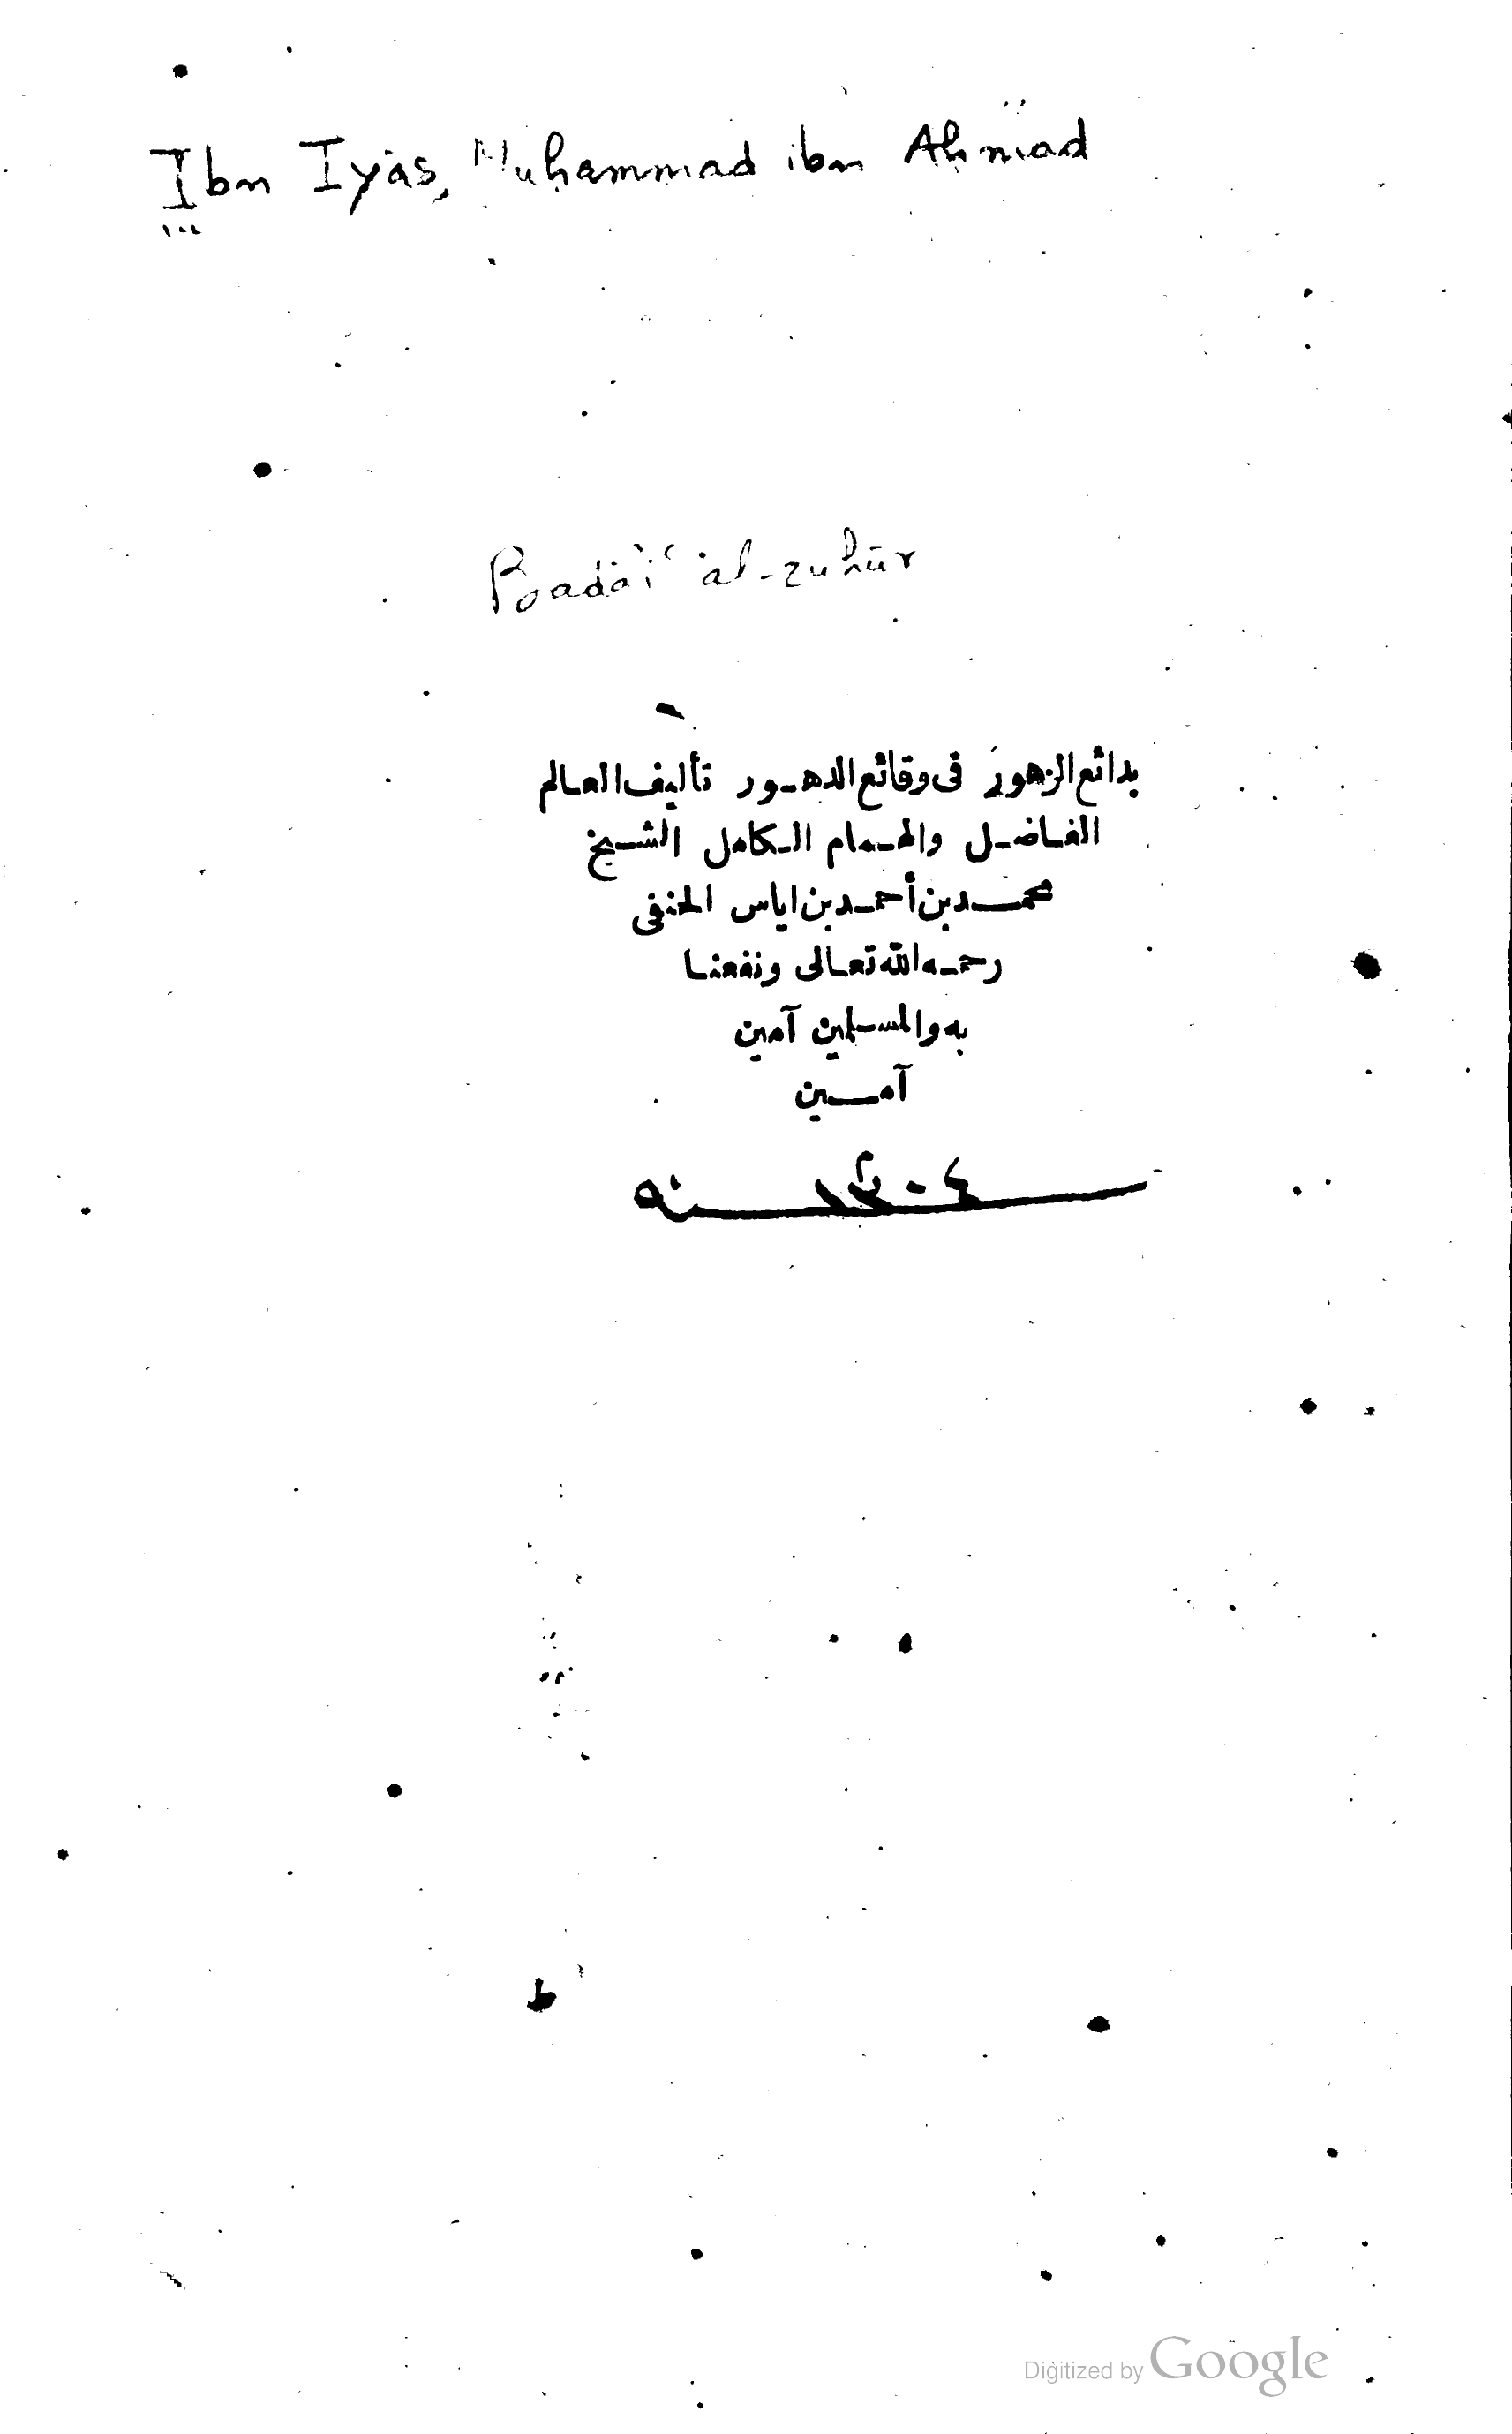 Ibn Iyās, Muḥammad ibn Aḥmad
Badāʾiʿ al-zuhūr
بدائع الزهور فى وقائع الدهور تأليف العالم
الفاضل والهمام الكامل الشيخ
محمد بن أحمد بن اياس الحنفى
رحمه الله تعالى ونفعنا
به والمسلمين آمين
آمين
سنة ١٣٠٤
Digitized by Google